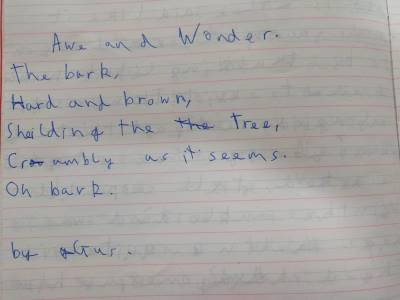 Awe and Wonder.
The bark,
Hard and brown,
Sheilding the the Tree,
Crumbly as it seems.
Oh bark.
by Gus.